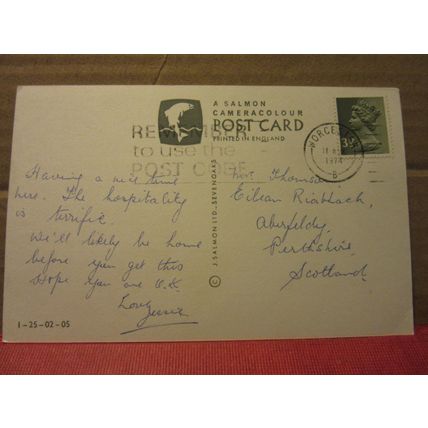 A SALMON
CAMERACOLOUR
POST CARD
PRINTED IN ENGLAND
REMEMBER
to use the
POST CODE
WORCESTER
1974
B
3½
Having a nice time
here. The hospitality
is terrific.
We'll likely be home
before you get this
Hope you are O.K.
Love
Jessie
1-25-02-05
© J. SALMON LTD., SEVENOAKS
Mrs Thomson
Eilean Riabhach,
Aberfeldy,
Perthshire,
Scotland.